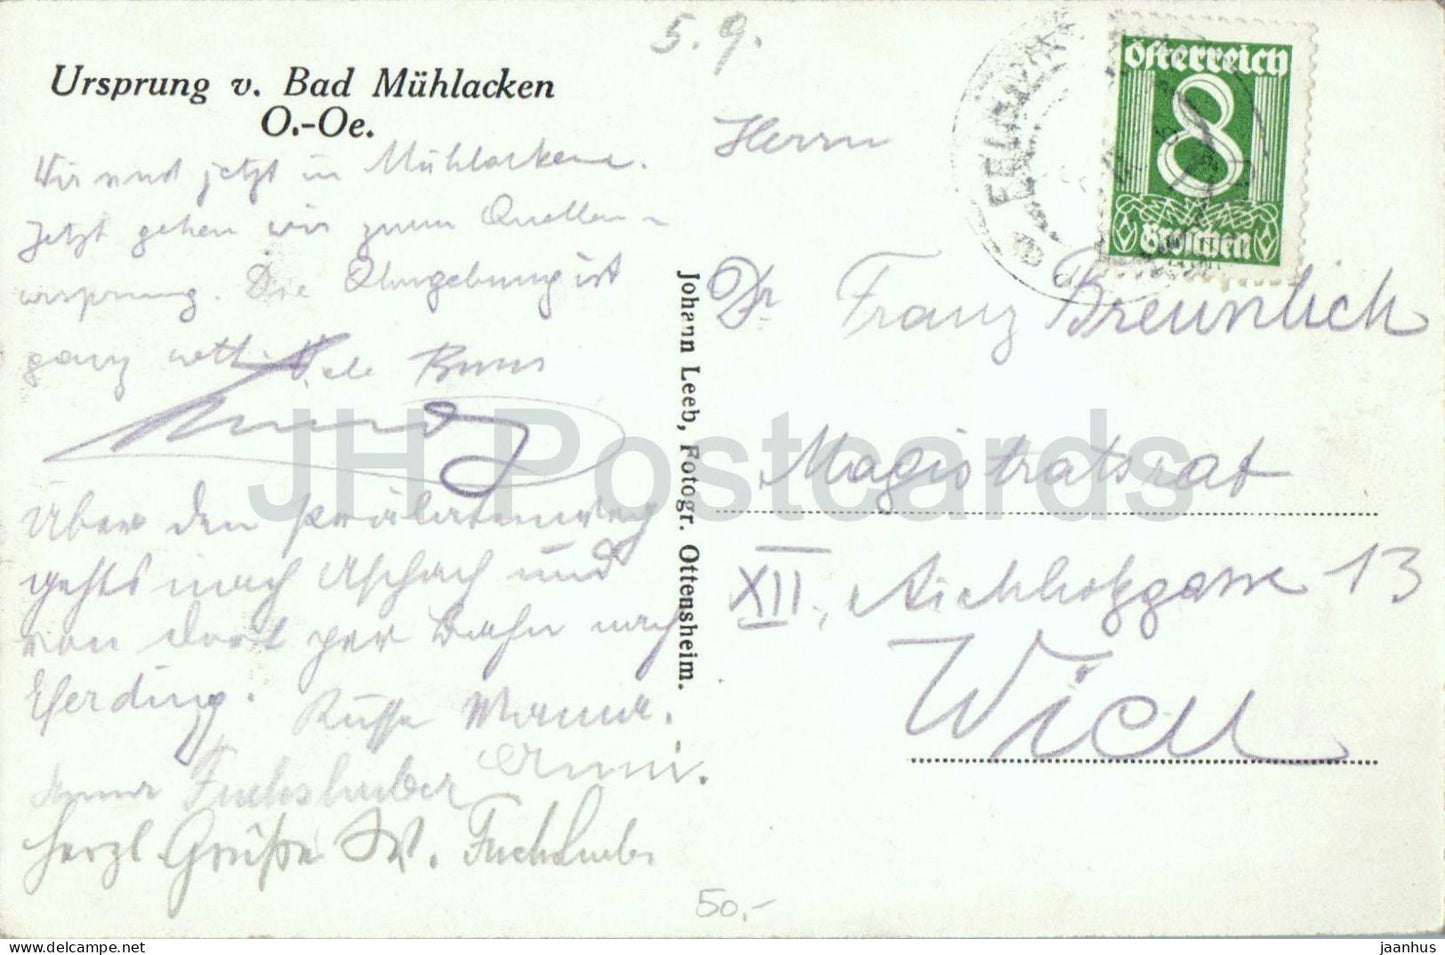 5. 9.
Ursprung v. Bad Mühlacken
O.-Oe.
Wir sind jetzt in Mühlacken.
Jetzt gehen wir zum Quellen-
ursprung. Die Umgebung ist
ganz nett. Viele
Über den Prälatenweg
gehts nach Aschach und
von dort per Bahn nach
Eferding. Küsse Mama.
Anni.
Fuchshuber
Herzl Grüße W. Fuchshuber
Johann Leeb, Fotogr. Ottensheim.
Österreich
8
Groschen
Herrn
Dr Franz Breunlich
Magistratsrat
XII., Aichholzgasse 13
Wien
50,-
JH Postcards
jaanhus
www.delcampe.net